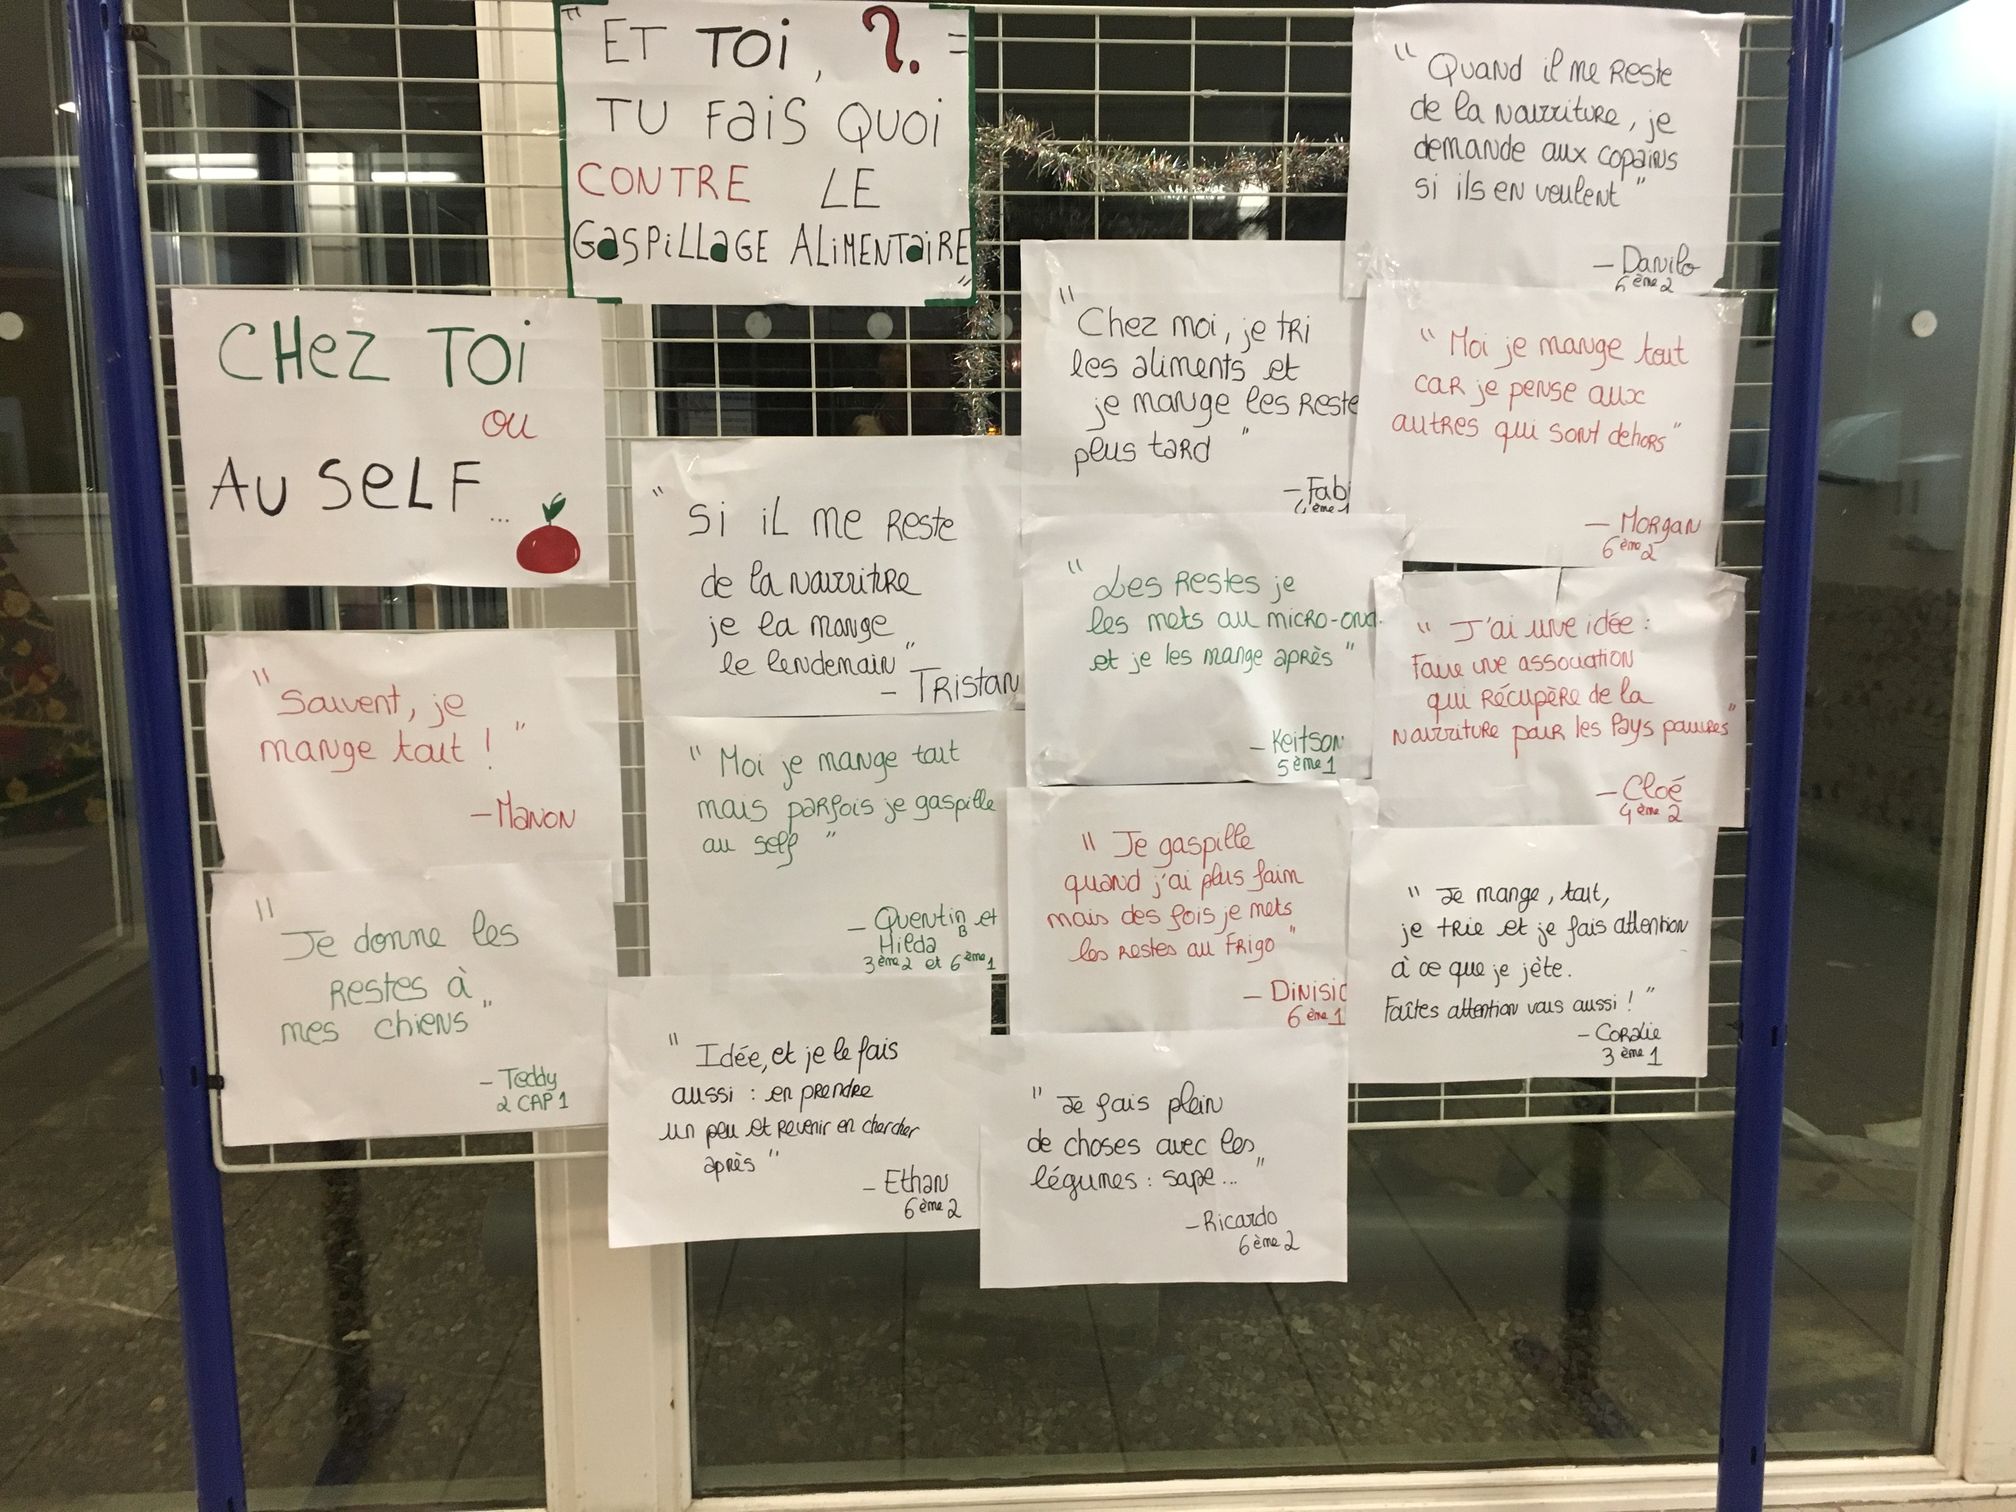 "ET TOi, ?
TU FaiS QUOi
CONTRE LE
GaSPiLLaGE ALiMENTaiRE"
CHeZ TOi
ou
AU SeLF...
"Souvent, je
mange tout ! "
—Manon
"Je donne les
restes à
mes chiens"
- Teddy
2 CAP 1
" Si il me reste
de la nourriture
je la mange
le lendemain"
- Tristan
"Moi je mange tout
mais parfois je gaspille
au self "
- Quentin et
B
Hilda
3ème2 et 6ème1
"Idée, et je le fais
aussi : en prendre
un peu et revenir en chercher
après "
- Ethan
6ème2
"Chez moi, je tri
les aliments et
je mange les reste
plus tard "
- Fabi
"Les restes je
les mets au micro-ond.
et je les mange après "
- Keitson
5ème1
"Je gaspille
quand j'ai plus faim
mais des fois je mets
les restes au frigo "
- Dinisic
6ème1
"Je fais plein
de choses avec les
légumes : soupe... "
- Ricardo
6ème2
"Quand il me reste
de la nourriture, je
demande aux copains
si ils en veulent "
- Danilo
6ème2
"Moi je mange tout
car je pense aux
autres qui sont dehors"
- Morgan
6ème2
" J'ai une idée :
Faire une association
qui récupère de la
nourriture pour les Pays pauvres"
- Cloé
4ème2
" Je mange, tout,
je trie et je fais attention
à ce que je jète.
Faîtes attention vous aussi ! "
- Coralie
3ème1